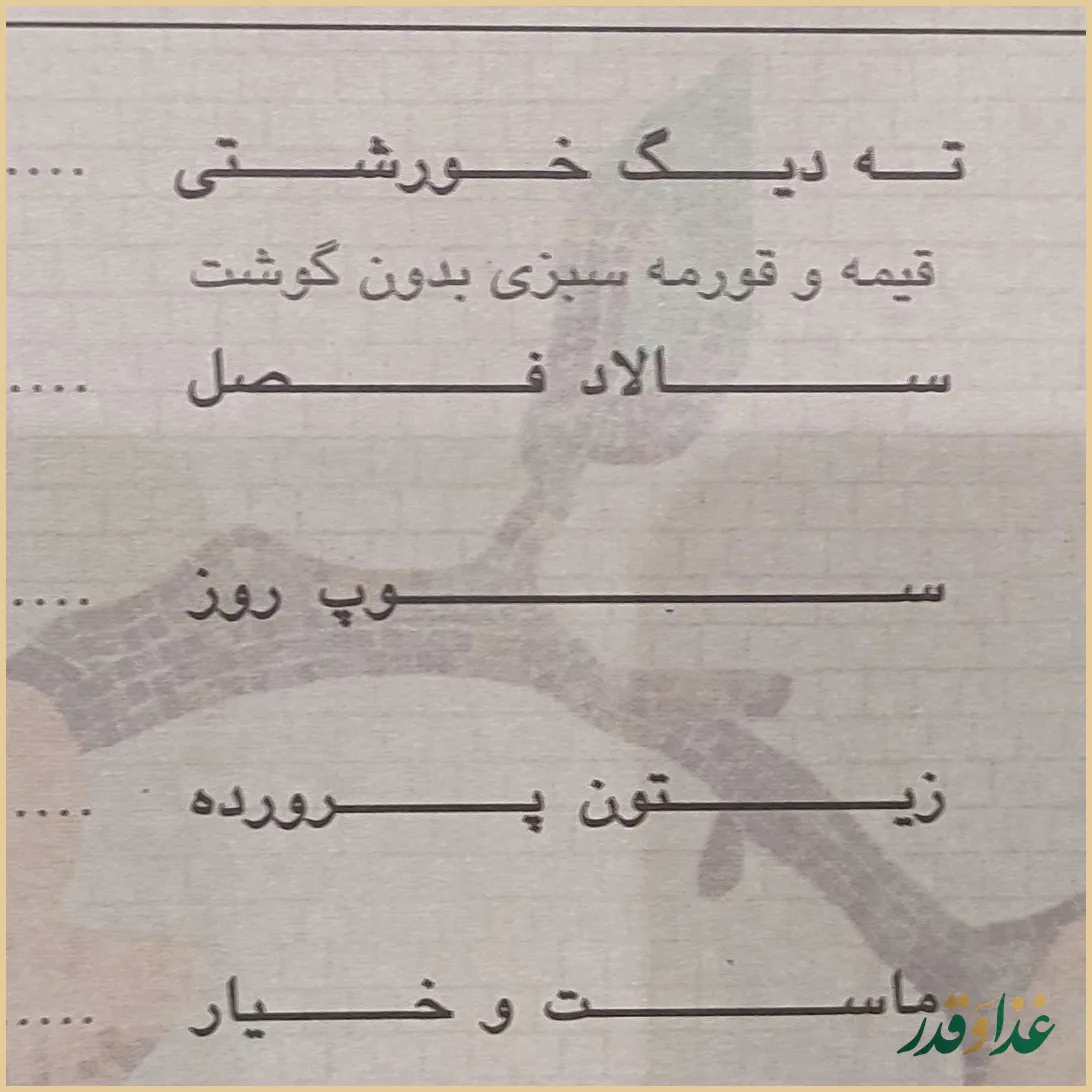 ته دیگ خورشتی ....
قیمه و قورمه سبزی بدون گوشت
سالاد فصل ....
سوپ روز ....
زیتون پرورده ....
ماست و خیار ....
غذا و قدر